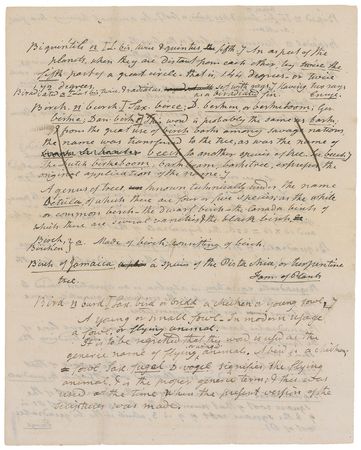 Biquintile n [L. bis, twice & quintus the fifth.] An aspect of the
planets, when they are distant from each other, by twice the
fifth part of a great circle, that is, 144 degrees, or twice
72 degrees.
Biradiated a [L. bis, twice & radiatus set with rays.] Having two rays
as a biradiated fin
Birch. n burch [Sax. birce; D. berken or berkeboom; Ger.
birke; Dan. birk. This word is probably the same as bark;
& from the great use of birch bark, among savage nations,
the name was transferred to the tree, as was the name of
beech to another species of tree. In beech,
The Dutch berkeboom, bark-beam, bark tree, expresses the
original application of the name.]
A genus of trees known technically under the name
Betula, of which there are four or five species; as the white
or common birch, the dwarf birch, the Canada birch, of
which there are several varieties, & the black birch
Birch, a. Made of birch, consisting of birch.
Birchen
Birch of Jamaica a species of the Pistachia, or turpentine
tree. Fam of Plants
Bird n burd [Sax. bird or bridd a chicken a young fowl.]
A young or small fowl. In modern usage
a fowl, or flying animal.
It is to be regretted that this word is used as the
generic name of flying animals. A bird is a chicken.
Fowl, Sax. fugel D. vogel signifies the flying
animal, & is the proper generic term; & this was
used at the time when the present version of the
scriptures was made.